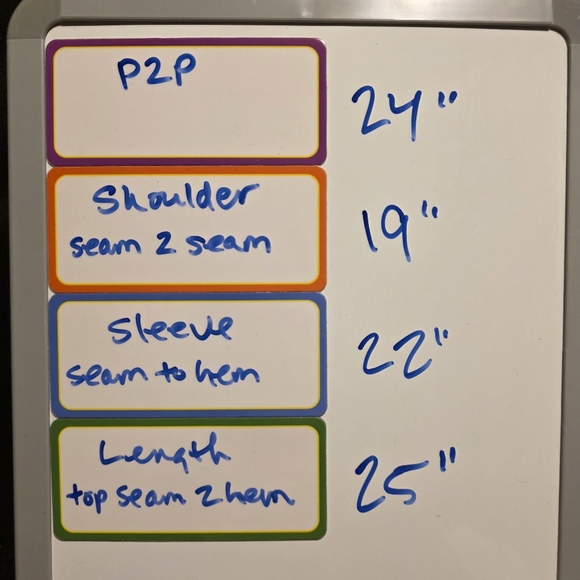 P2P
24"
Shoulder
seam 2 seam
19"
Sleeve
seam to hem
22"
Length
top seam 2 hem
25"